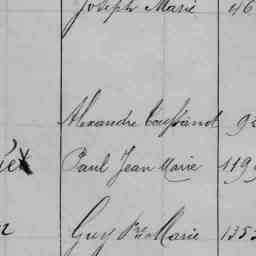 Joseph Marie 46
Alexandre Toussaint 92
Paul Jean Marie 119
Guy Pre Marie 135